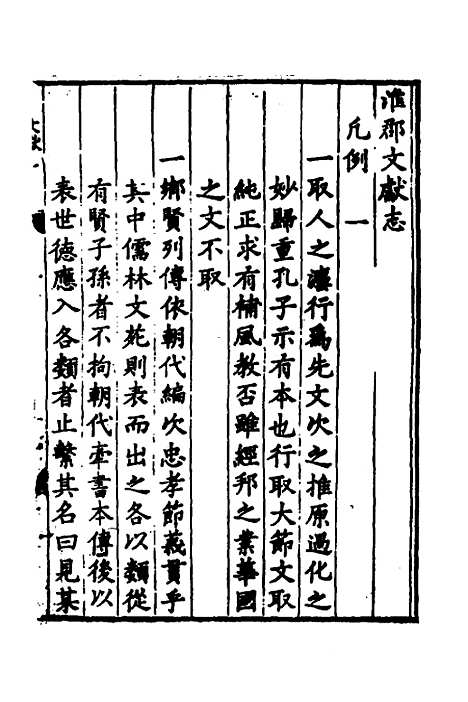 淮郡文獻志
凡例 一
一取人之法行爲先文次之推原過化之
妙歸重孔子示有本也行取大節文取
純正求有補風教否雖經邦之業華國
之文不取
一鄉賢列傳依朝代編次忠孝節義貫乎
其中儒林文苑則表而出之各以類從
有賢子孫者不拘朝代牽書本傳後以
表世德應入各類者止繫其名曰見某